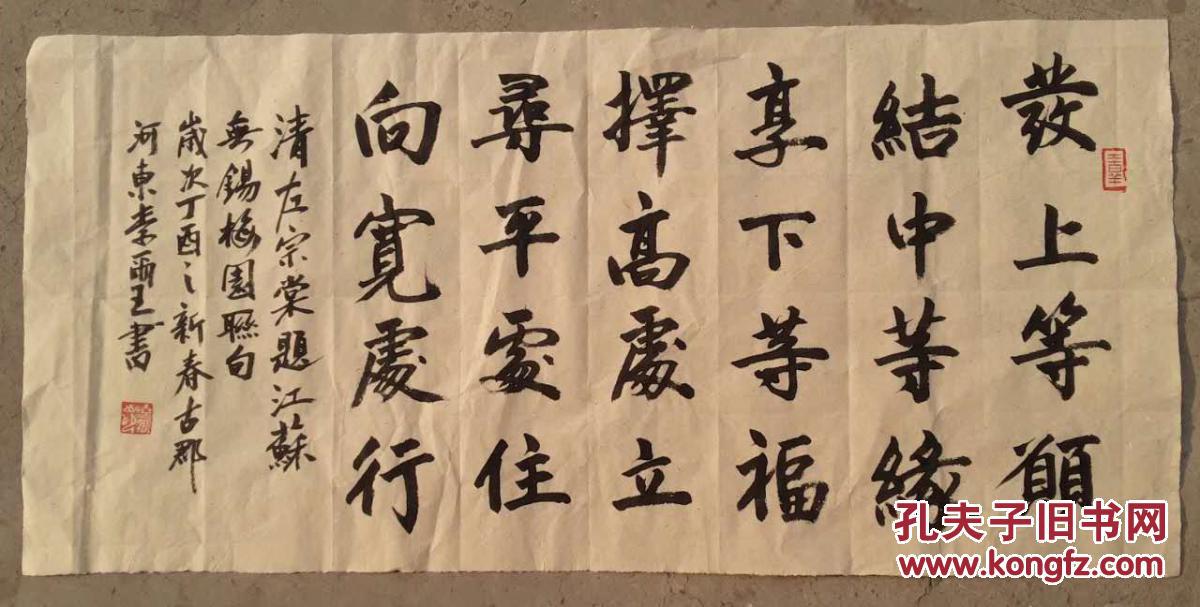 發上等願
結中等緣
享下等福
擇高處立
尋平處住
向寬處行
清左宗棠題江蘇
無錫梅園聯句
歲次丁酉之新春古郡
河東李雨王書
孔夫子旧书网
www.kongfz.com